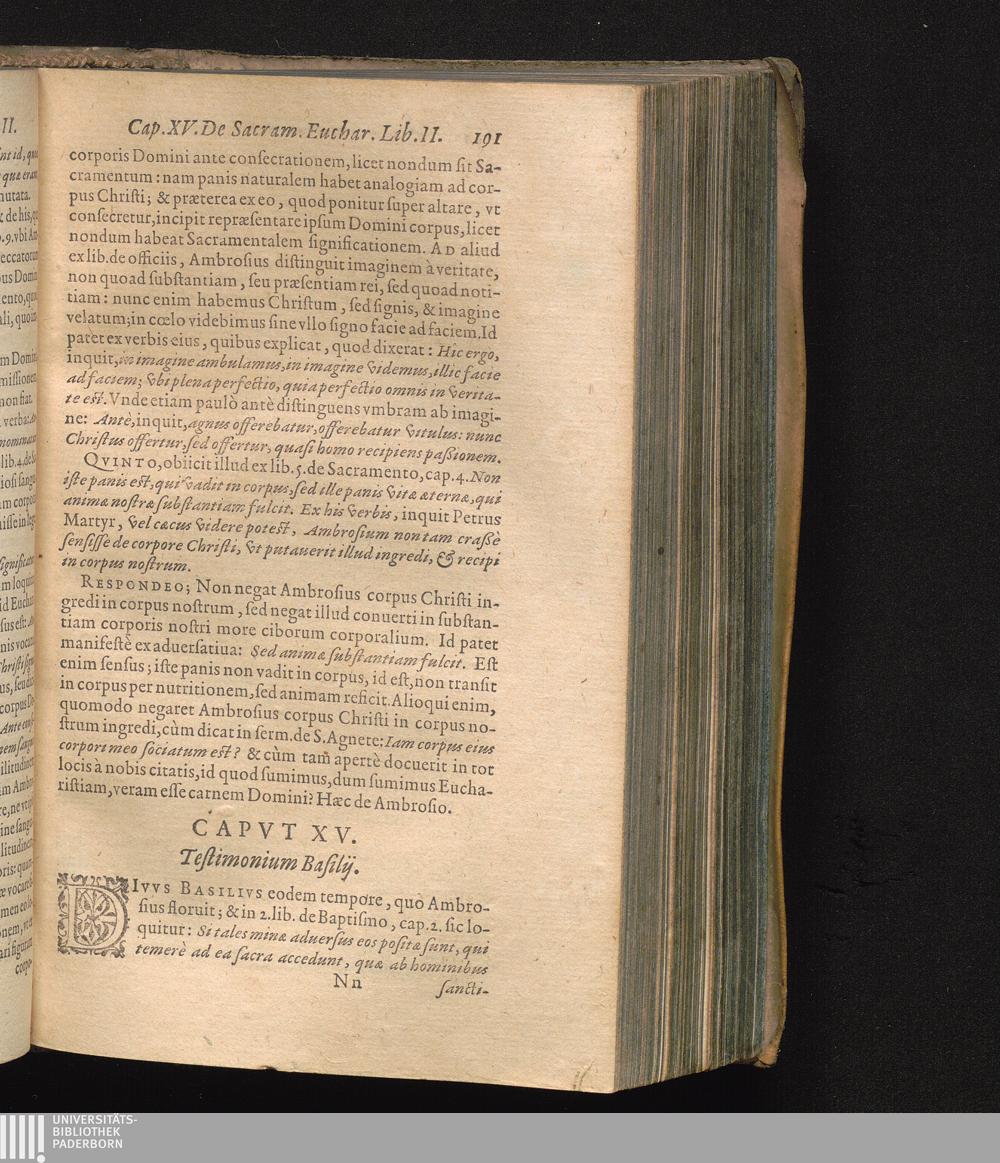 Cap. XV. De Sacram. Euchar. Lib. II. 191
corporis Domini ante conſecrationem, licet nondum ſit Sa-
cramentum: nam panis naturalem habet analogiam ad cor-
pus Chriſti; & præterea ex eo, quod ponitur ſuper altare, vt
conſecretur, incipit repræſentare ipſum Domini corpus, licet
nondum habeat Sacramentalem ſignificationem. AD aliud
ex lib. de officiis, Ambroſius diſtinguit imaginem à veritate,
non quoad ſubſtantiam, ſeu præſentiam rei, ſed quoad noti-
tiam: nunc enim habemus Chriſtum, ſed ſignis, & imagine
velatum; in cœlo videbimus ſine vllo ſigno facie ad faciem. Id
patet ex verbis eius, quibus explicat, quod dixerat: Hic ergo,
inquit, in imagine ambulamus, in imagine videmus, illic facie
ad faciem; vbi plena perfectio, quia perfectio omnis in verita-
te eſt. Vnde etiam paulò antè diſtinguens vmbram ab imagi-
ne: Antè, inquit, agnus offerebatur, offerebatur vitulus: nunc
Chriſtus offertur, ſed offertur, quaſi homo recipiens paſſionem.
QVINTO, obiicit illud ex lib. 5. de Sacramento, cap. 4. Non
iſte panis eſt, qui vadit in corpus, ſed ille panis vitæ æternæ, qui
animæ noſtræ ſubſtantiam fulcit. Ex his verbis, inquit Petrus
Martyr, vel cæcus videre poteſt, Ambroſium non tam craſſè
ſenſiſſe de corpore Chriſti, vt putauerit illud ingredi, & recipi
in corpus noſtrum.
RESPONDEO; Non negat Ambroſius corpus Chriſti in-
gredi in corpus noſtrum, ſed negat illud conuerti in ſubſtan-
tiam corporis noſtri more ciborum corporalium. Id patet
manifeſtè ex aduerſatiua: Sed animæ ſubſtantiam fulcit. Eſt
enim ſenſus; iſte panis non vadit in corpus, id eſt, non tranſit
in corpus per nutritionem, ſed animam reficit. Alioqui enim,
quomodo negaret Ambroſius corpus Chriſti in corpus no-
ſtrum ingredi, cùm dicat in ſerm. de S. Agnete: Iam corpus eius
corpori meo ſociatum eſt? & cùm tam̃ apertè docuerit in tot
locis à nobis citatis, id quod ſumimus, dum ſumimus Eucha-
riſtiam, veram eſſe carnem Domini? Hæc de Ambroſio.
CAPVT XV.
Teſtimonium Baſilij.
DIVVS BASILIVS eodem tempore, quò Ambro-
ſius floruit; & in 2. lib. de Baptiſmo, cap. 2. ſic lo-
quitur: Si tales minæ aduerſus eos poſitæ ſunt, qui
temerè ad ea ſacra accedunt, quæ ab hominibus
Nn ſancti-
UNIVERSITÄTS-
BIBLIOTHEK
PADERBORN